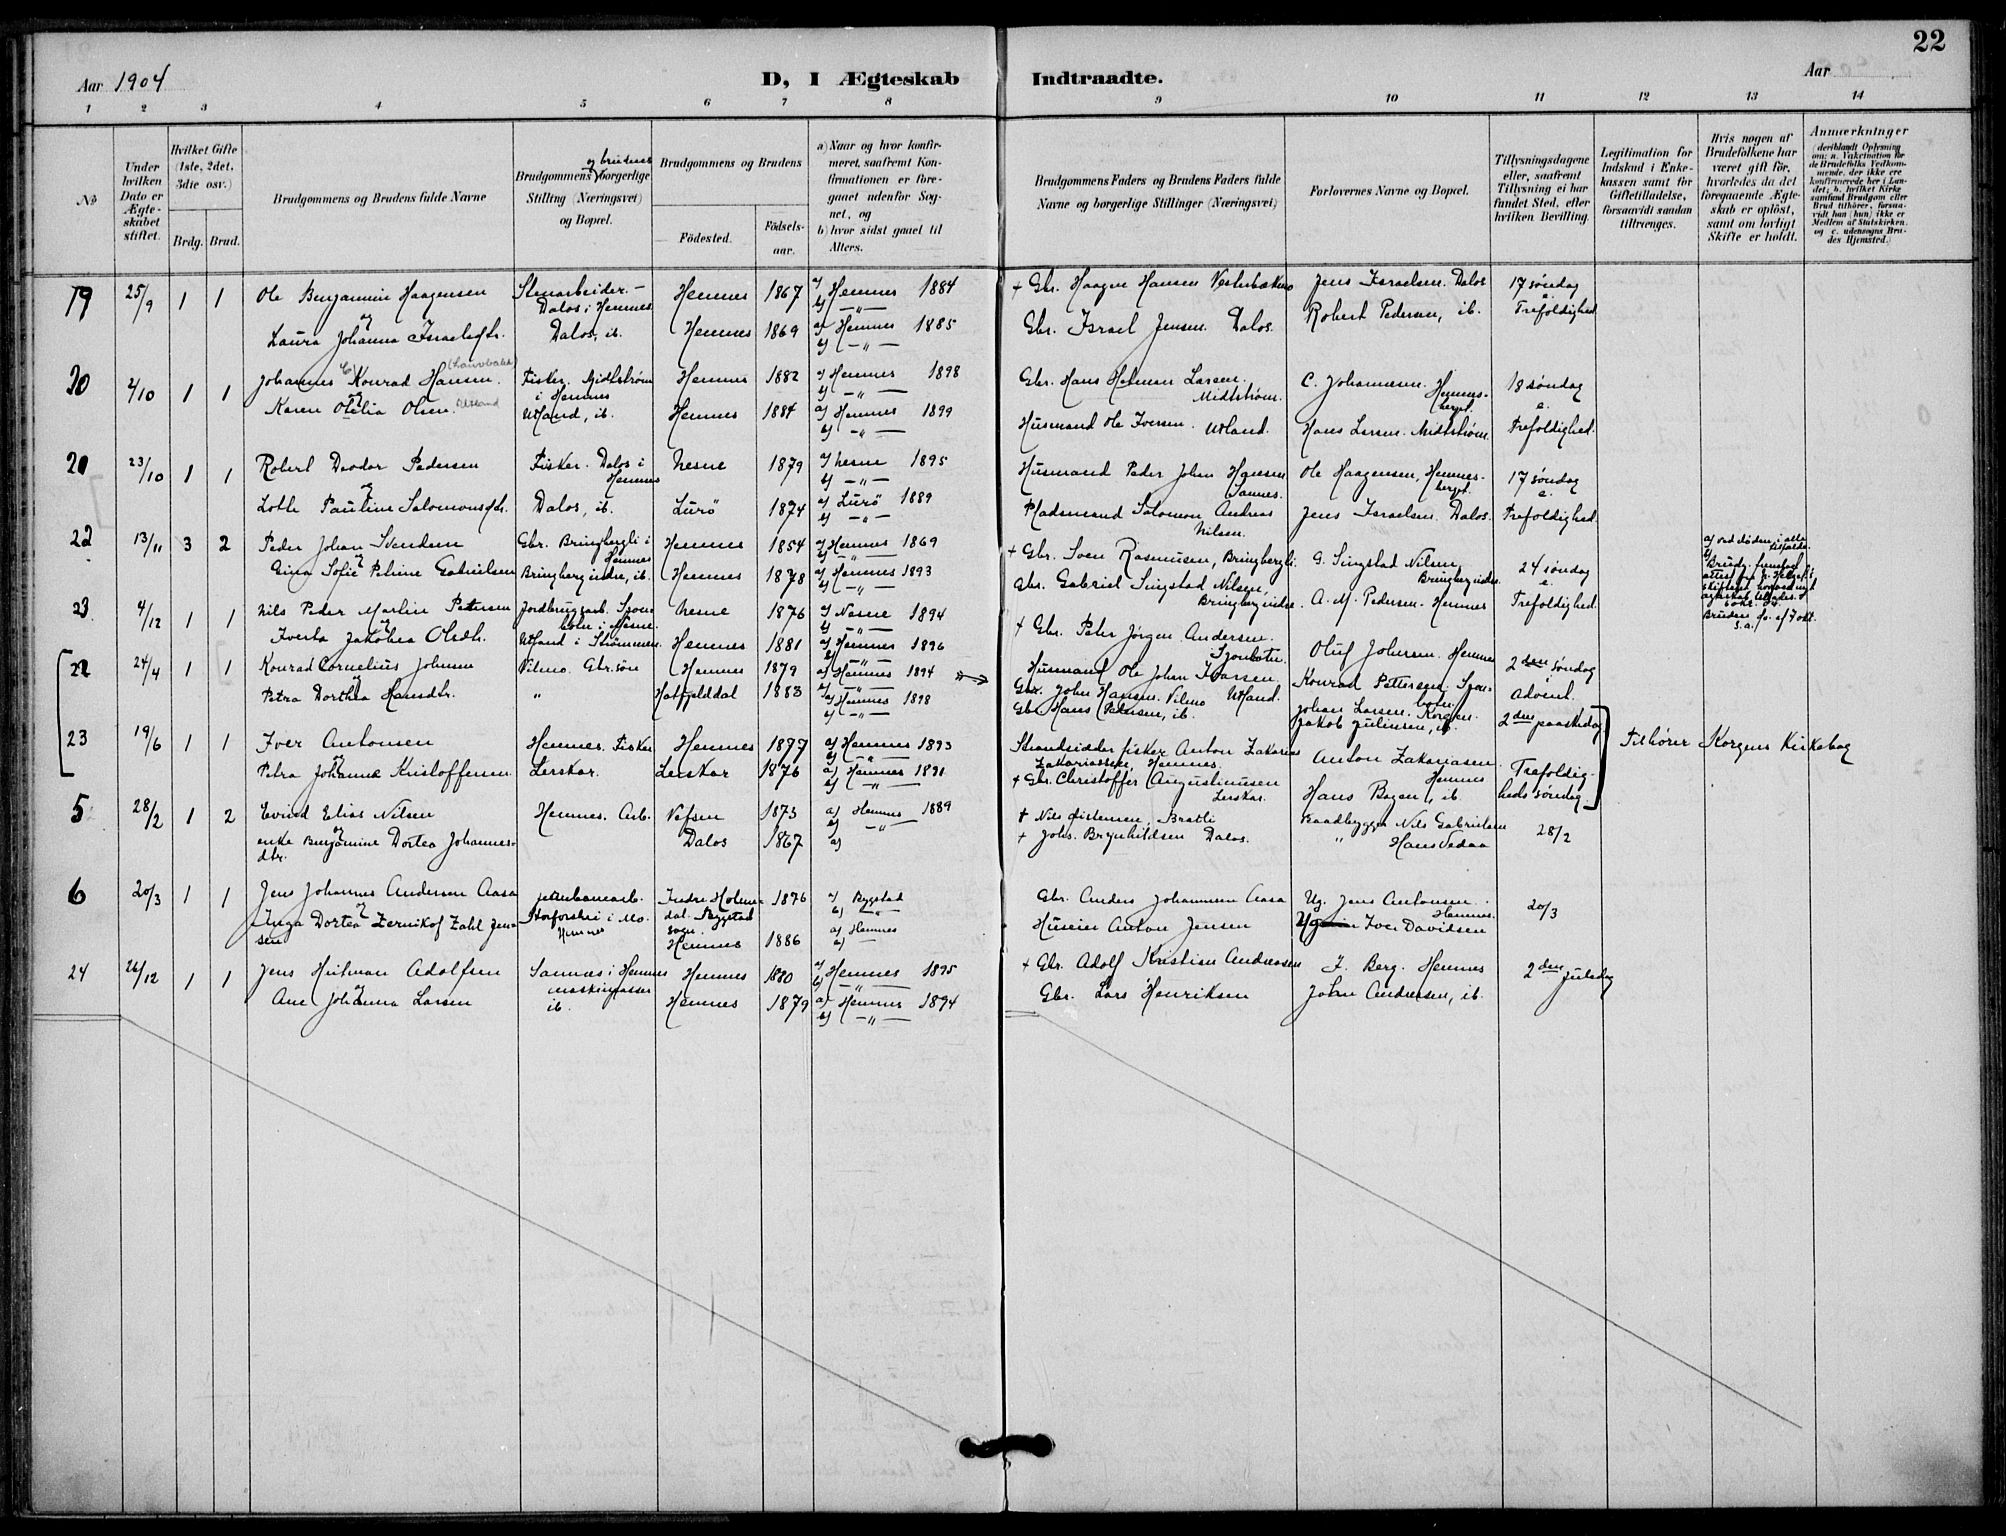 22
Aar 1904
D, I Ægteskab Indtraadte.
Aar
1 2 3 4 5 6 7 8 9 10 11 12 13 14
No
Under hvilken Dato er Ægteskabet stiftet.
Hvilket Gifte (1ste, 2det, 3die osv.)
Brdg. Brud.
Brudgommens og Brudens fulde Navne
Brudgommens og brudens borgerlige Stilling (Næringsvei) og Bopæl.
Brudgommens og Brudens
Födested. Födsels-aar.
a) Naar og hvor konfirmeret, saafremt Konfirmationen er foregaaet udenfor Sognet, og
b) hvor sidst gaaet til Alters.
Brudgommens Faders og Brudens Faders fulde Navne og borgerlige Stillinger (Næringsvei)
Forlovernes Navne og Bopæl.
Tillysningsdagene eller, saafremt Tillysning ei har fundet Sted, efter hvilken Bevilling.
Legitimation for Indskud i Enkekassen samt for Giftetilladelse, forsaavidt saadan tiltrænges.
Hvis nogen af Brudefolkene har været gift för, hvorledes da det foregaaende Ægteskab er oplöst, samt om lovligt Skifte er holdt.
Anmærkninger (deriblandt Oplysning om: a. Vakcination for de Brudefolks Vedkommende, der ikke ere konfirmerede her i Landet; b. hvilket Kirkesamfund Brudgom eller Brud tilhörer, forsaavidt han (hun) ikke er Medlem af Statskirken, og c. udensogns Brudes Hjemsted.)
19 25/9 1 1 Ole Benjamin Haagensen Stenarbeider - Dalos i Hemnes Hemnes 1867 a) Hemnes 1884 b) -"- + Gbr. Haagen Hansen Jens Israelsen. Dalos 17 søndag e. Trefoldighed
og Laura Johanna Israelsdtr. Dalos, ib. Hemnes 1869 a) Hemnes 1885 b) -"- Gbr. Israel Jensen. Dalos. Robert Pedersen, ib.
20 2/10 1 1 Johannes Konrad Hansen. Fisker. Midtstrøm i Hemnes Hemnes 1882 a) Hemnes 1898 b) -"- Gbr. Hans Larsen. Midtstrøm. C. Johannesen. Hemnesberget. 18 søndag e. Trefoldighed.
og Karen Otelia Olsen. Utland Utland, ib. Hemnes 1884 a) Hemnes 1899 b) -"- Husmand Ole Iversen. Utland. Hans Larsen. Midtstrøm.
21 23/10 1 1 Robert Deodor Pedersen Fisker. Dalos i Hemnes Nesne 1879 a) Nesne 1895 b) -"- Husmand Peder Johan Hansen Ole Haagensen, Hemnesberget. 17 søndag e. Trefoldighed.
og Lotte Pauline Salomonsdtr. Dalos, ib. Lurö 1874 a) Lurö 1889 b) -"- Pladsmand Salomon Andreas Nilsen. Jens Israelsen. Dalos.
22 13/11 3 2 Peder Johan Svendsen Gbr. Bringbergli i Hemnes Hemnes 1854 a) Hemnes 1869 b) -"- + Gbr. Sven Rasmussen, Bringbergli. G. Singstad Nilsen Bringberg indre. 24 søndag e. Trefoldighed. a) ved döden, i alle tilfælde.
og Gina Sofie Peline Gabrielsen Bringberg indre, ib. Hemnes 1878 a) Hemnes 1893 b) -"- Gbr. Gabriel Singstad Nilsen, Bringberg indre. A. M. Pedersen. Hemnes
23 4/12 1 1 Nils Peder Martin Petersen Jordbrugsarb. Sjonbotn i Nesne. Nesne 1876 a) Nesne 1894 b) -"- + Gbr. Peter Jørgen Andersen. Sjonbotn. Oluf Johnsen. Hemnes 2den søndag Advent.
og Iverta Jakobea Olsdtr. Utland i Strømmen. Hemnes 1881 a) Hemnes 1896 b) -"- Husmand Ole Johan Iversen. Utland. Konrad Pettersen. Sjonbotn.
22 24/4 1 1 Konrad Cornelius Johnsen Vilmo. Gbr.søn Hemnes 1879 a) Hemnes 1894 b) -"- Gbr. John Hansen. Vilmo Johan Larsen. Korgen. 2den paaskedag
og Petra Dorthea Hansdtr. " Hatfjelddal 1883 a) Hemnes 1898 b) -"- Gbr. Hans Petersen, ib. Jakob Julinsen, ib.
23 19/6 1 1 Iver Antonsen Hemnes. Fisker Hemnes 1877 a) Hemnes 1893 b) -"- Strandsidder fisker Anton Zakarias Zakariassen, Hemnes. Anton Zakariasen. Hemnes Trefoldigheds söndag Tilhører Korgens Kirkebog
og Petra Johanna Kristoffersen. Lerskar. Lerskar 1876 a) Hemnes 1891 b) -"- + Gbr. Christoffer Augustinusen Lerskar. Hans Bogen, ib.
5 28/2 1 2 Eevind Elias Nilsen Hemnes. Arb. Vefsen 1873 a) Hemnes 1889 b) -"- + Nils Bratli Baadbygger Nils Gabrielsen 28/2
og enke Benjamine Dortea Johannesdtr. Dalos 1867 a) + Johs. Brynhildsen Dalos. " Hans Vedaa
6 20/3 1 1 Jens Johannes Andersen Aasa jernbanearb. Storforshei i Mo. Indre Holmedal. Bygstad sogn. 1876 a) Bygstad b) -"- Gbr. Anders Johannesen Aasa Ug. Jens Antonsen. Hemnes. 20/3
og Inga Dortea Zernikof Zahl Jensen Hemnes Hemnes 1886 a) Hemnes Huseier Anton Jensen Iver Davidsen
24 26/12 1 1 Jens Hilman Adolfsen Sannæs i Hemnes maskinpasser Hemnes 1880 a) Hemnes 1895 b) -"- + Gbr. Adolf Kristian Andreasen J. Berg. Hemnes 2den juledag
og Ane Johanna Larsen ib. Hemnes 1879 a) Hemnes 1894 b) -"- Gbr. Lars Henriksen John Andreasen, ib.